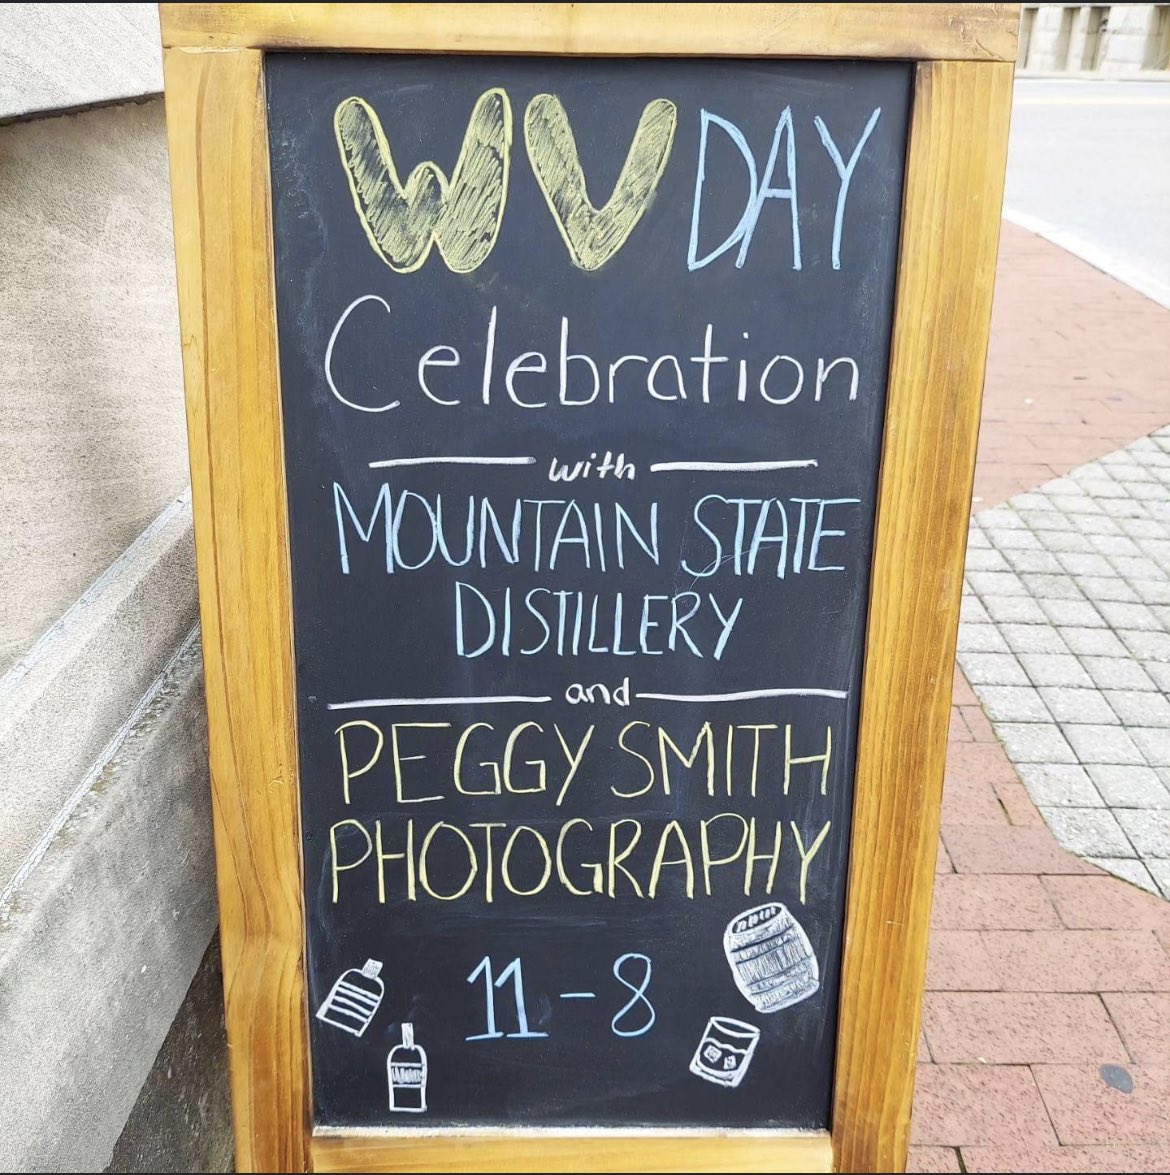 WV DAY
Celebration
with
MOUNTAIN STATE
DISTILLERY
and
PEGGY SMITH
PHOTOGRAPHY
11-8